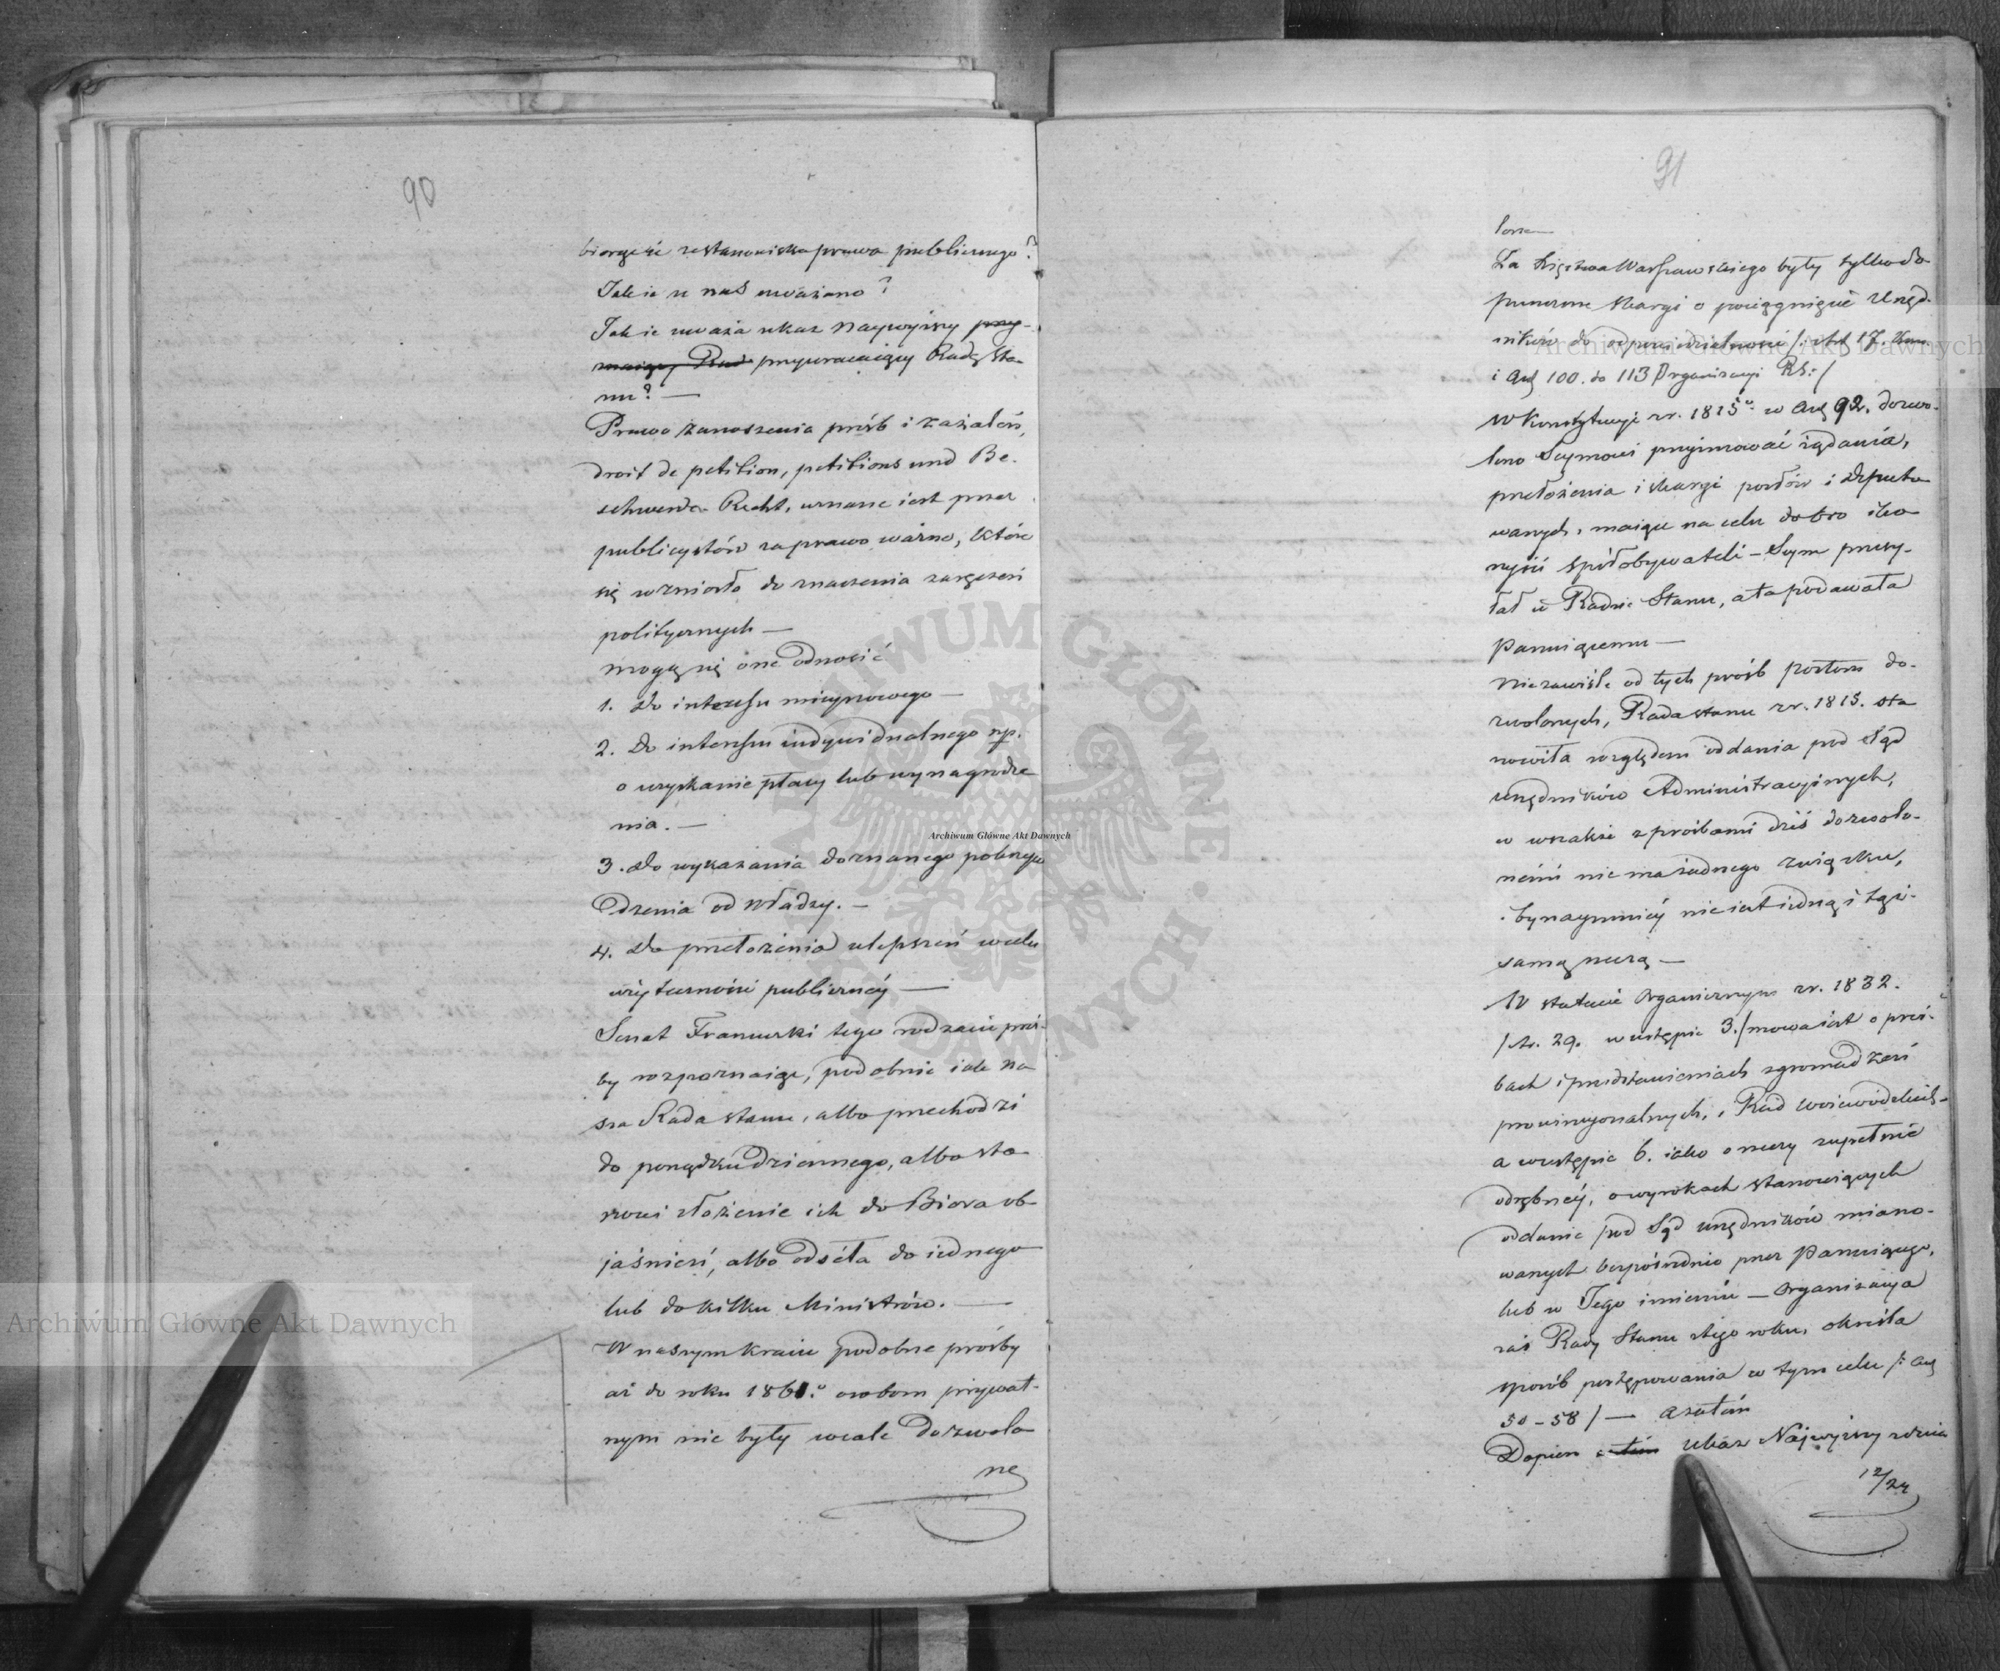 90
biorąc ie ze stanowiska prawa publicznego?
Jak ie u nas uważano?
Jak ie uważa ukaz Naywyższy przy-
maiący Rad przywracaiący Radę Sta-
nu? —
Prawo zanoszenia próśb i zażaleń,
droit de petition, petitions und Be-
schwerde-Recht, uznane iest przez
publicystów za prawo ważne, które
się wzniosło do znaczenia zaręczeń
politycznych —
mogą się one odnosić
1. do interesu mieyscowego —
2. do interesu indywidualnego np.
o uzyskanie płacy lub wynagrodze
nia. —
3. do wykazania doznanego pokrzyw
dzenia od Władzy. —
4. do przełożenia ulepszeń w celu
użyteczności publiczney —
Senat Francuski tego rodzaiu proś-
by rozpoznaiąc, podobnie iak na
sza Rada Stanu, albo przechodzi
do porządku dziennego, albo sta
nowi złożenie ich do Biora ob-
jaśnień, albo odséła do iednego
lub do kilku Ministrów. —
W naszym kraiu podobne prośby
aż do roku 1861.o osobom prywat-
nym nie były wcale dozwolo
ne
91
lone
Za Xięztwa Warszawskiego były tylko do
puszczone skargi o pociągnięcie Urzęd-
ników do odpowiedzialności /: Art 17. Kon.
i Art 100. do 113 Organizacyi RS: /
W Konstytucyi z r. 1815o w Art 92. dozwo-
lono Seymowi przyimować żądania,
przełożenia i skargi posłów i Deputo
wanych, maiące na celu dobro i ko
rzyść spółobywateli — Seym przesy-
łał ie Radzie Stanu, a ta podawała
Panuiącemu —
Niezawiśle od tych próśb posłom do-
zwolonych, Rada Stanu z r. 1815. sta
nowiła względem oddania pod Sąd
urzędników Administracyjnych,
co wszakże z prośbami dziś dozwolo-
némi nie ma żadnego związku,
bynaymniéy nie iest iedną i tąż
samą rzeczą —
W statucie Organicznym z r. 1832.
/ Ar. 29. w ustępie 3. / mowa iest o proś-
bach i przedstawieniach zgromadzeń
prowincyonalnych, i Rad Woiewódzkich -
a w ustępie 6. iako o rzeczy zupełnie
odrębnéy, o wyrokach stanowiących
oddanie pod Sąd urzędników miano-
wanych bezpośrednio przez Panuiącego,
lub w Jego imieniu — Organizacya
zaś Rady Stanu z tego roku, określa
sposób postępowania w tym celu /: Art
50 - 58 / — a zatém
Dopiero zatém Ukaz Najwyższy z dnia
12/24
Archiwum Główne Akt Dawnych
Archiwum Główne Akt Dawnych
Archiwum Główne Akt Dawnych
ARCHIWUM GŁÓWNE AKT DAWNYCH